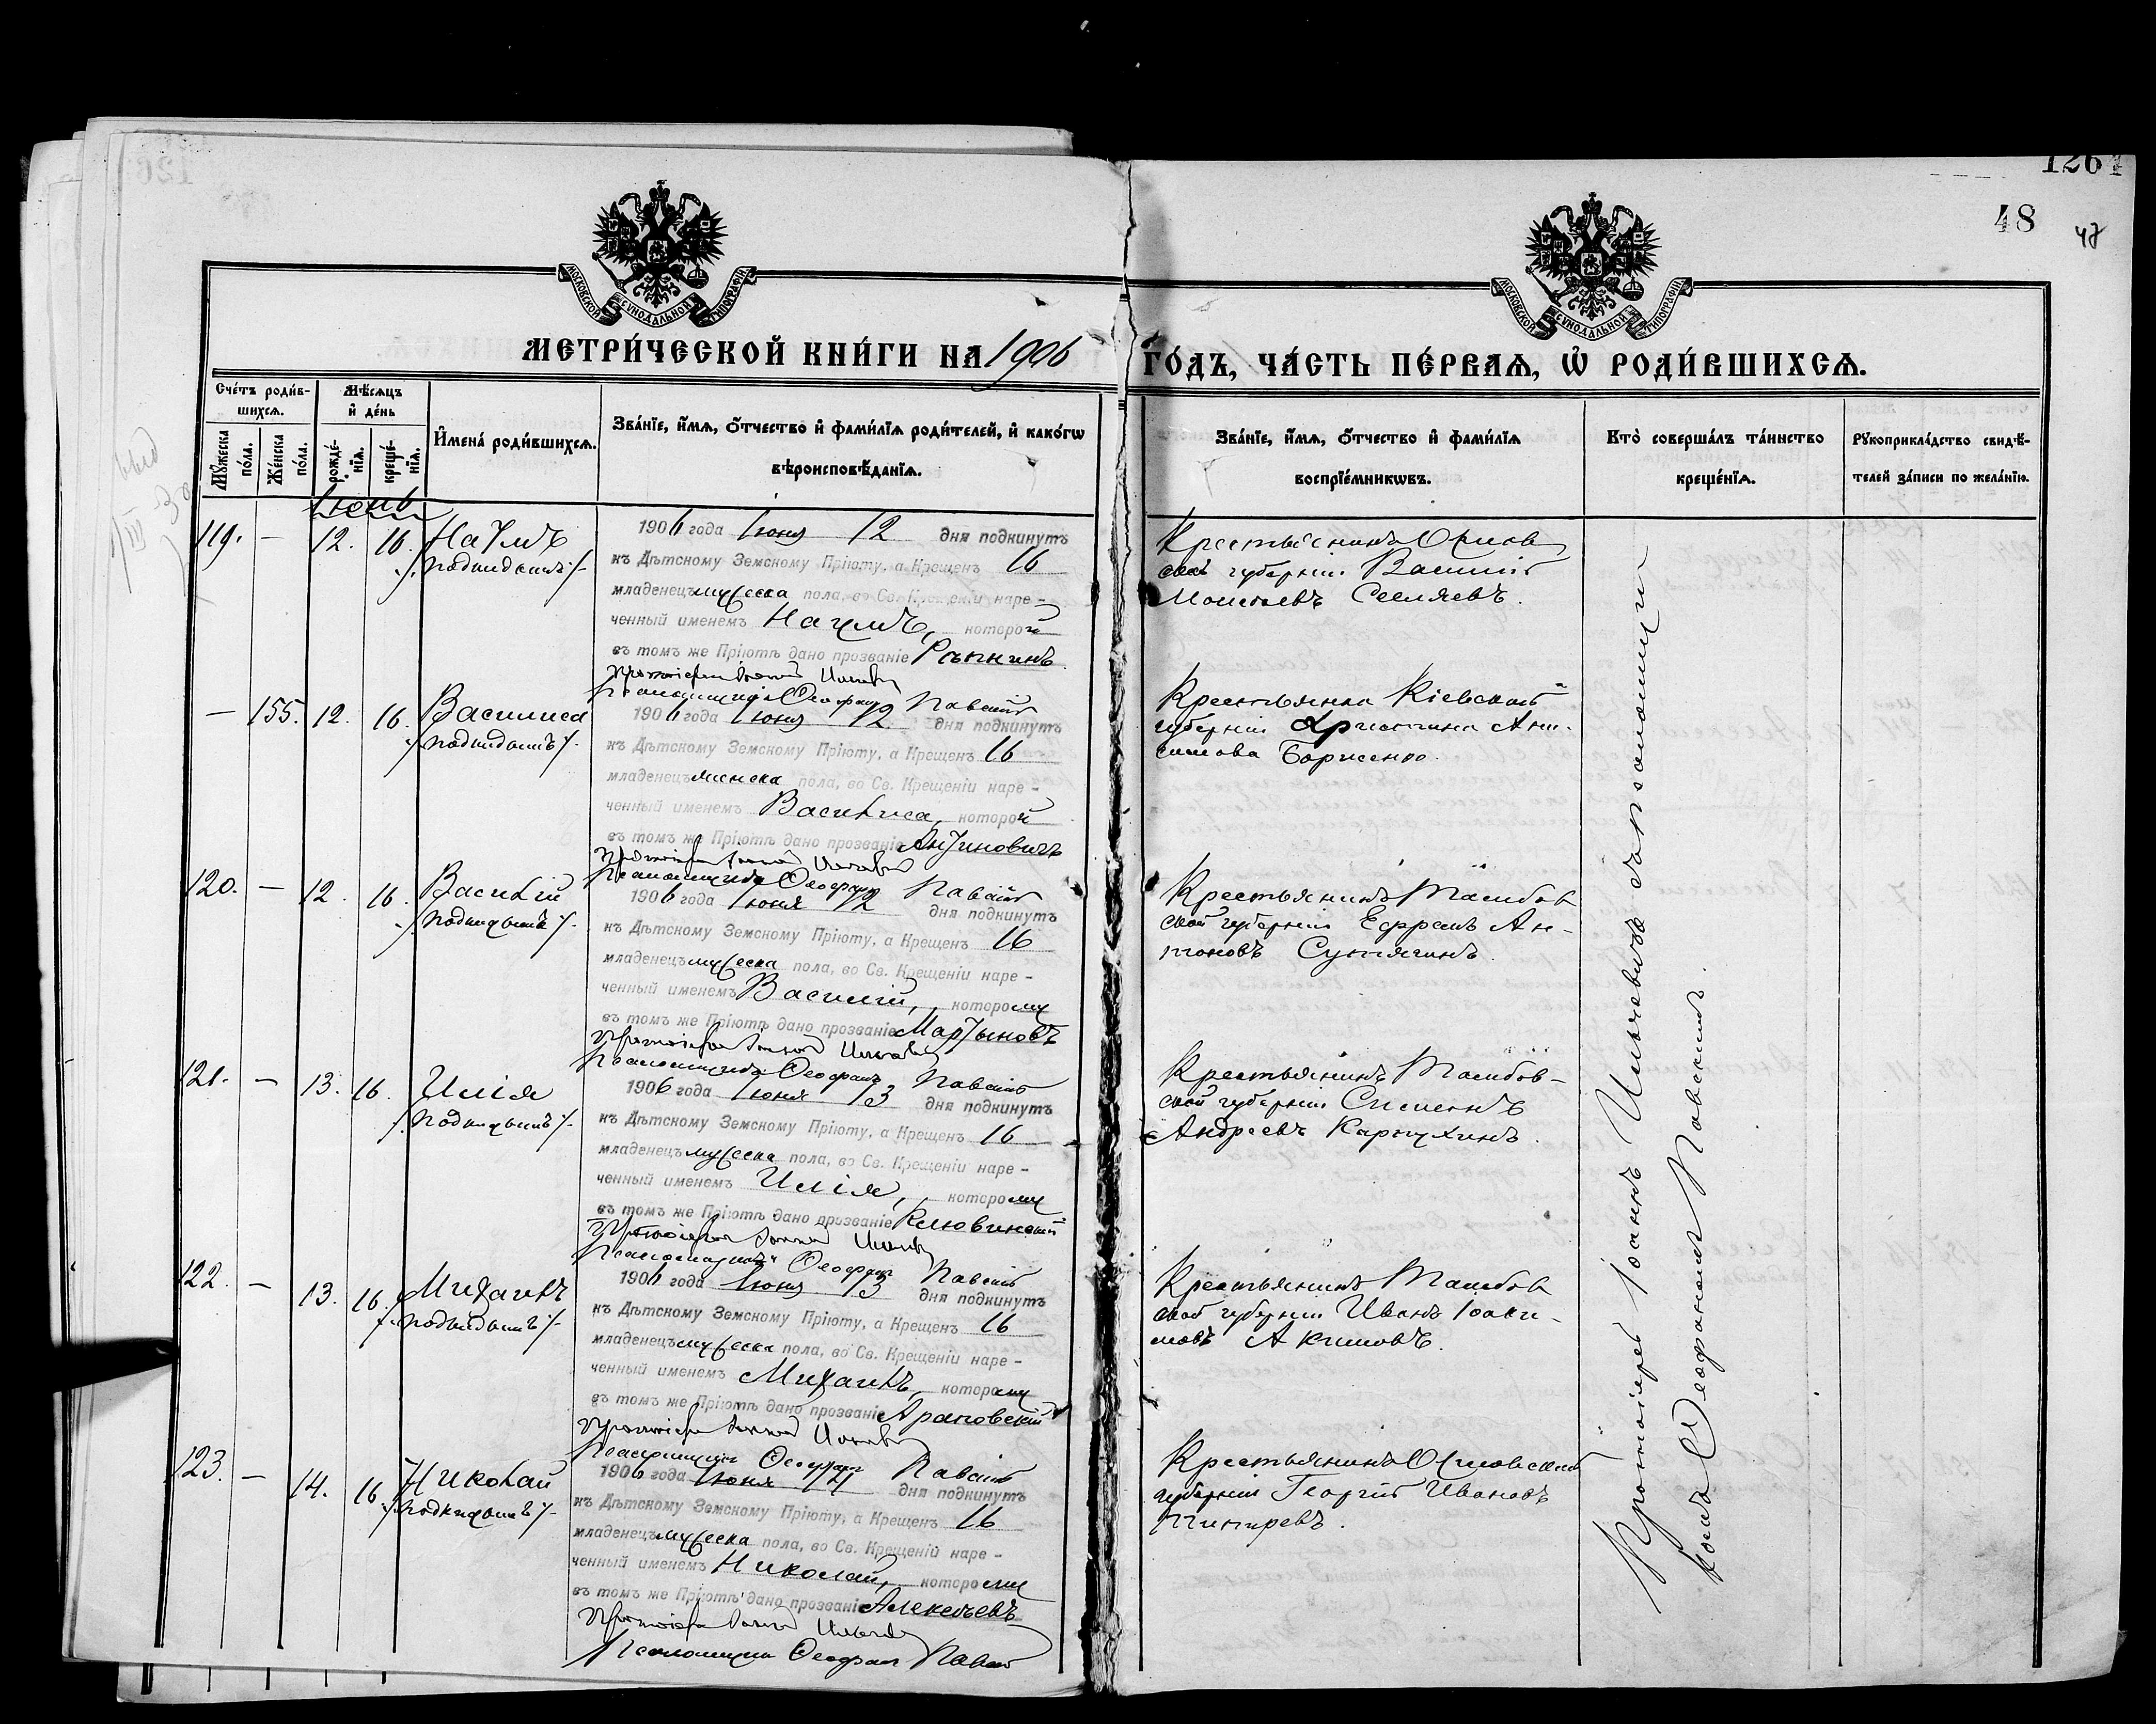 1264
48
47
МОСКОВСКОЙ СѴНОДАЛЬНОЙ ТИПОГРАФІИ
МОСКОВСКОЙ СѴНОДАЛЬНОЙ ТИПОГРАФІИ
МЕТРИ́ЧЕСКОЙ КНИ́ГИ НА 1906 ГО́ДЪ, ЧА́СТЬ ПЕ́РВАѦ, Ѡ҆ РОДИ́ВШИХСѦ.
Сче́тъ роди́в-
шихсѧ.
Мꙋ́жеска по́ла.
Же́нска по́ла.
Мѣ́сѧцъ
и҆ де́нь
рожде́-нїѧ.
креще́-нїѧ.
И҆мена̀ роди́вшихсѧ.
Зва́нїе, и҆́мѧ, ѻ҆́тчество и҆ фами́лїѧ роди́телей, и҆ како́гѡ
вѣроисповѣ́данїѧ.
Зва́нїе, и҆́мѧ, ѻ҆́тчество и҆ фами́лїѧ
воспрїе́мникѡвъ.
Кто̀ соверша́лъ та́инство
креще́нїѧ.
Рꙋкоприкла́дство свидѣ́-
телей за́писи по жела́нїю.
Іюнь
119. — 12. 16. Наумъ
подкидышъ
1906 года Іюня 12 дня подкинутъ
къ Дѣтскому Земскому Пріюту, а Крещенъ 16
младенецъ мужеска пола, во Св. Крещеніи наре-
ченный именемъ Наумъ, которой
въ томъ же Пріютѣ дано прозваніе Рѣпкинъ.
Протоіерей Іоаннъ
Псаломщикъ Ѳеофанъ Павскій
Крестьянинъ Орлов
ской губерніи Василій
Моисеевъ
— 155. 12. 16. Василиса
подкидышъ
1906 года Іюня 12 дня подкинутъ
къ Дѣтскому Земскому Пріюту, а Крещенъ 16
младенецъ женска пола, во Св. Крещеніи наре-
ченный именемъ Василиса, которой
въ томъ же Пріютѣ дано прозваніе Антиновичъ
Протоіерей Іоаннъ
Псаломщикъ Ѳеофанъ Павскій
Крестьянка Кіевской
губерніи Христина Ани-
симова Борженко.
120. — 12. 16. Василій
подкидышъ
1906 года Іюня 12 дня подкинутъ
къ Дѣтскому Земскому Пріюту, а Крещенъ 16
младенецъ мужеска пола, во Св. Крещеніи наре-
ченный именемъ Василій, которому
въ томъ же Пріютѣ дано прозваніе Мартыновъ
Протоіерей Іоаннъ
Псаломщикъ Ѳеофанъ Павскій
Крестьянинъ Тамбов
ской губерніи Ефремъ Ан-
тоновъ Сутягинъ.
121. — 13. 16. Илія
подкидышъ
1906 года Іюня 13 дня подкинутъ
къ Дѣтскому Земскому Пріюту, а Крещенъ 16
младенецъ мужеска пола, во Св. Крещеніи наре-
ченный именемъ Илія, которому
въ томъ же Пріютѣ дано прозваніе Клювинскій
Протоіерей Іоаннъ
Псаломщикъ Ѳеофанъ Павскій
Крестьянинъ Тамбов-
ской губерніи Симеонъ
Андреевъ Карпухинъ.
122. — 13. 16. Михаилъ
подкидышъ
1906 года Іюня 13 дня подкинутъ
къ Дѣтскому Земскому Пріюту, а Крещенъ 16
младенецъ мужеска пола, во Св. Крещеніи наре-
ченный именемъ Михаилъ, которому
въ томъ же Пріютѣ дано прозваніе Араповскій
Протоіерей Іоаннъ
Псаломщикъ Ѳеофанъ Павскій
Крестьянинъ Тамбов
ской губерніи Иванъ Іоаки-
мовъ Акимовъ.
123. — 14. 16. Николай
подкидышъ
1906 года Іюня 14 дня подкинутъ
къ Дѣтскому Земскому Пріюту, а Крещенъ 16
младенецъ мужеска пола, во Св. Крещеніи наре-
ченный именемъ Николай, которому
въ томъ же Пріютѣ дано прозваніе Алексѣевъ
Протоіерей Іоаннъ
Псаломщикъ Ѳеофанъ Павскій
Крестьянинъ Орловской
губерніи Георгій Ивановъ
Протоіерей Іоаннъ съ псаломщи-
комъ Ѳеофаномъ Павскимъ.